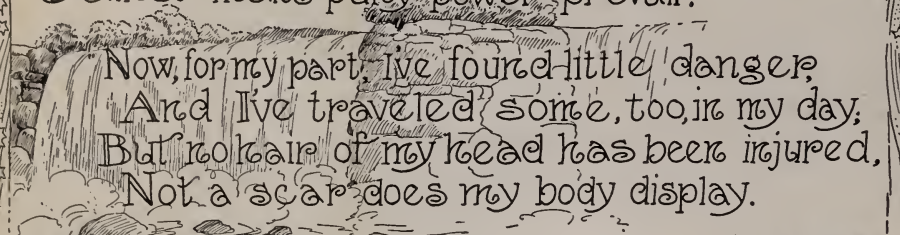 puny power prevail.
Now, for my part, I've found little danger,
And I've traveled some, too, in my day;
But no hair of my head has been injured,
Not a scar does my body display.